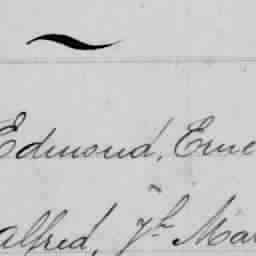 Edmond, Erne
alfred, Jh Mar